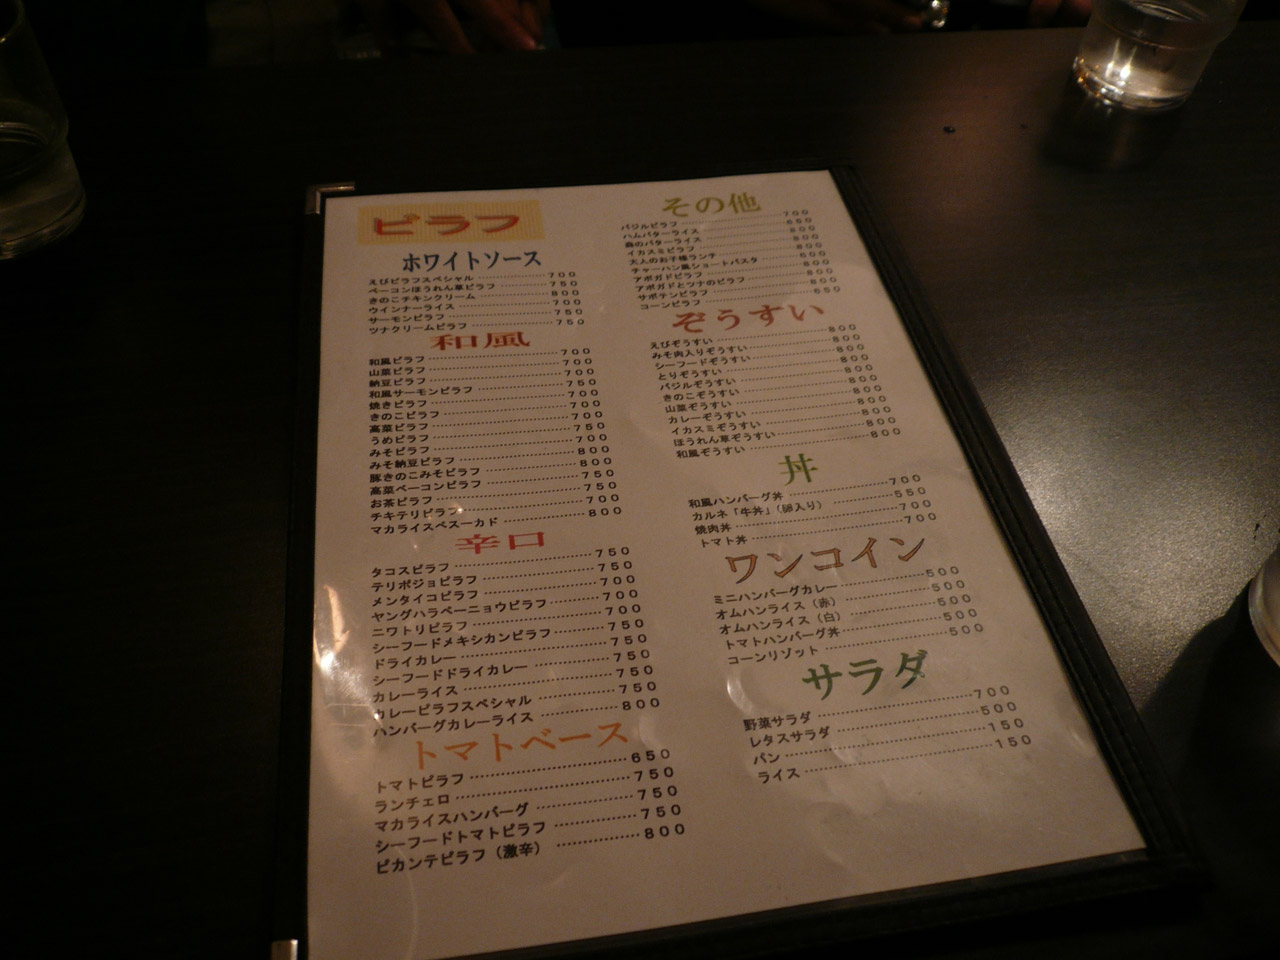 ピラフ
ホワイトソース
えびピラフスペシャル 700
ベーコンほうれん草ピラフ 750
きのこチキンクリーム 800
ウインナーライス 700
サーモンピラフ 750
ツナクリームピラフ 750
和風
和風ピラフ 700
山菜ピラフ 700
納豆ピラフ 700
和風サーモンピラフ 750
焼きピラフ 700
きのこピラフ 700
高菜ピラフ 700
うめピラフ 750
みそピラフ 700
みそ納豆ピラフ 800
豚きのこみそピラフ 800
高菜ベーコンピラフ 750
お茶ピラフ 750
チキテリピラフ 700
マカライスペスーカド 800
辛口
タコスピラフ 750
テリポジョピラフ 750
メンタイコピラフ 700
ヤングハラペーニョウピラフ 700
ニワトリピラフ 700
シーフードメキシカンピラフ 750
ドライカレー 750
シーフードドライカレー 750
カレーライス 750
カレーピラフスペシャル 750
ハンバーグカレーライス 800
トマトベース
トマトピラフ 650
ランチェロ 750
マカライスハンバーグ 750
シーフードトマトピラフ 750
ピカンテピラフ（激辛） 800
その他
バジルピラフ 700
ハムバターライス 650
鳥のバターライス 800
イカスミピラフ 800
大人のお子様ランチ 800
チャーハン風ショートパスタ 800
アボガドピラフ 800
アボガドとツナのピラフ 800
サボテンピラフ 800
コーンピラフ 650
ぞうすい
えびぞうすい 800
みそ肉入りぞうすい 800
シーフードぞうすい 800
とりぞうすい 800
バジルぞうすい 800
きのこぞうすい 800
山菜ぞうすい 800
カレーぞうすい 800
イカスミぞうすい 800
ほうれん草ぞうすい 800
和風ぞうすい 800
丼
和風ハンバーグ丼 700
カルネ「牛丼」（卵入り） 550
焼肉丼 700
トマト丼 700
ワンコイン
ミニハンバーグカレー 500
オムハンライス（赤） 500
オムハンライス（白） 500
トマトハンバーグ丼 500
コーンリゾット 500
サラダ
野菜サラダ 700
レタスサラダ 500
パン 150
ライス 150